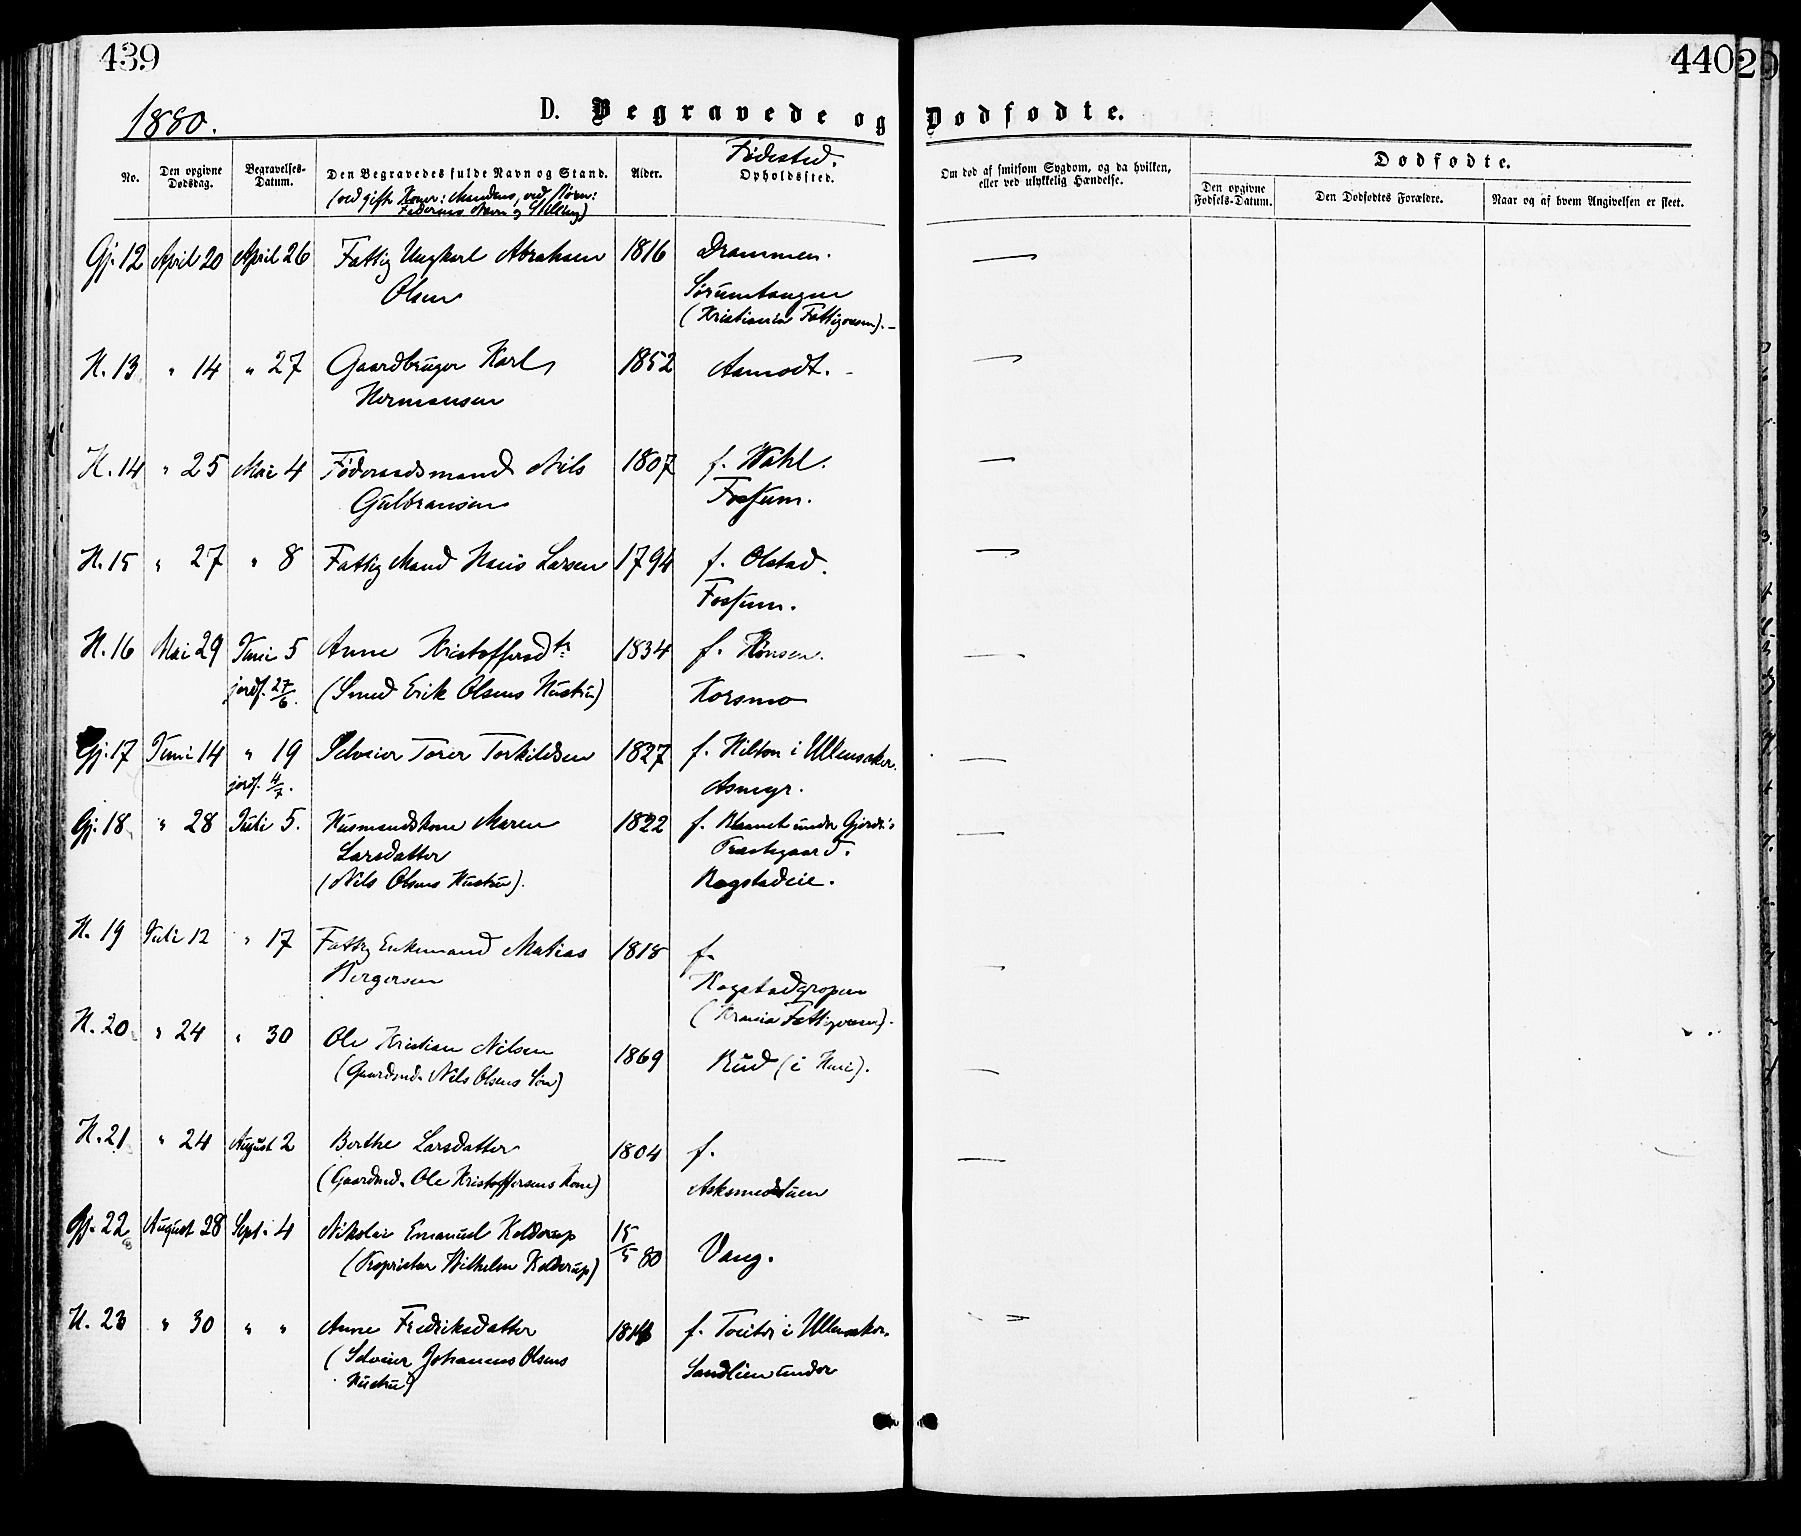 439
440
1880.
D. Begravede og Dødfødte.
No.
Den opgivne Dødsdag.
Begravelses-Datum.
Den Begravedes fulde Navn og Stand.
(ved gifte Koner: Mandens, ved Børn:
Faderens Navn og Stilling)
Alder.
Fødested.
Opholdssted.
Om død af smitsom Sygdom, og da hvilken,
eller ved ulykkelig Hændelse.
Dødfødte.
Den opgivne Fødsels-Datum.
Den Dødfødtes Forældre.
Naar og af hvem Angivelsen er skeet.
Gj. 12 April 20 April 26 Fattig Ungkarl Abraham 1816 Drammen. —
Olsen Sørumtangen
(Kristiania Fattigvæsen). –
H. 13 " 14 " 27 Gaardbruger Karl 1852 Aamodt. – —
Hermansen
H. 14 " 25 Mai 4 Føderaadsmand Nils 1807 f. Wahl. —
Gulbransen Fossum.
H. 15 " 27 " 8 Fattig Mand Hans Larsen 1794 f. Olstad. —
Fossum.
H. 16 Mai 29 Juni 5 Anne Kristoffersdtr 1834 f. Hønsen. —
jordf. 27/6. (Smed Erik Olsens Hustru) Korsmo
Gj. 17 Juni 14 " 19 Selveier Torer Torkildsen 1827 f. Hilton i Ullensaker. —
jordf. 4/7. Asmyr.
Gj. 18 " 28 Juli 5. Husmandskone Maren 1822 f. under Gjerdr's —
Larsdatter Præstegaard.
(Nils Olsens Hustru). Rogstadeie.
H. 19 Juli 12 " 17 Fattig Enkemand Matias 1818 f. —
Hergersen Kogstadgropen
(Krania Fattigvæsen).
H. 20 " 24 " 30 Ole Kristian Nilsen 1869 Rud (i Huri). —
(Gaardmd. Nils Olsens Søn)
H. 21 " 24 August 2 Berthe Larsdatter 1804 f. —
(Gaardmd. Ole Kristoffersens Kone) Askemostuen
Gj. 22 August 28 Sept. 4 Nikolai Emanuel Kolderup 15/5 80 Vang.
(Proprietær Wilhelm Kolderup)
H. 23 " 30 " " Anne Fredriksdatter f. Tveiter i Ullensaker. —
(Selveier Johannes Olsens Sandlien under
Hustru)